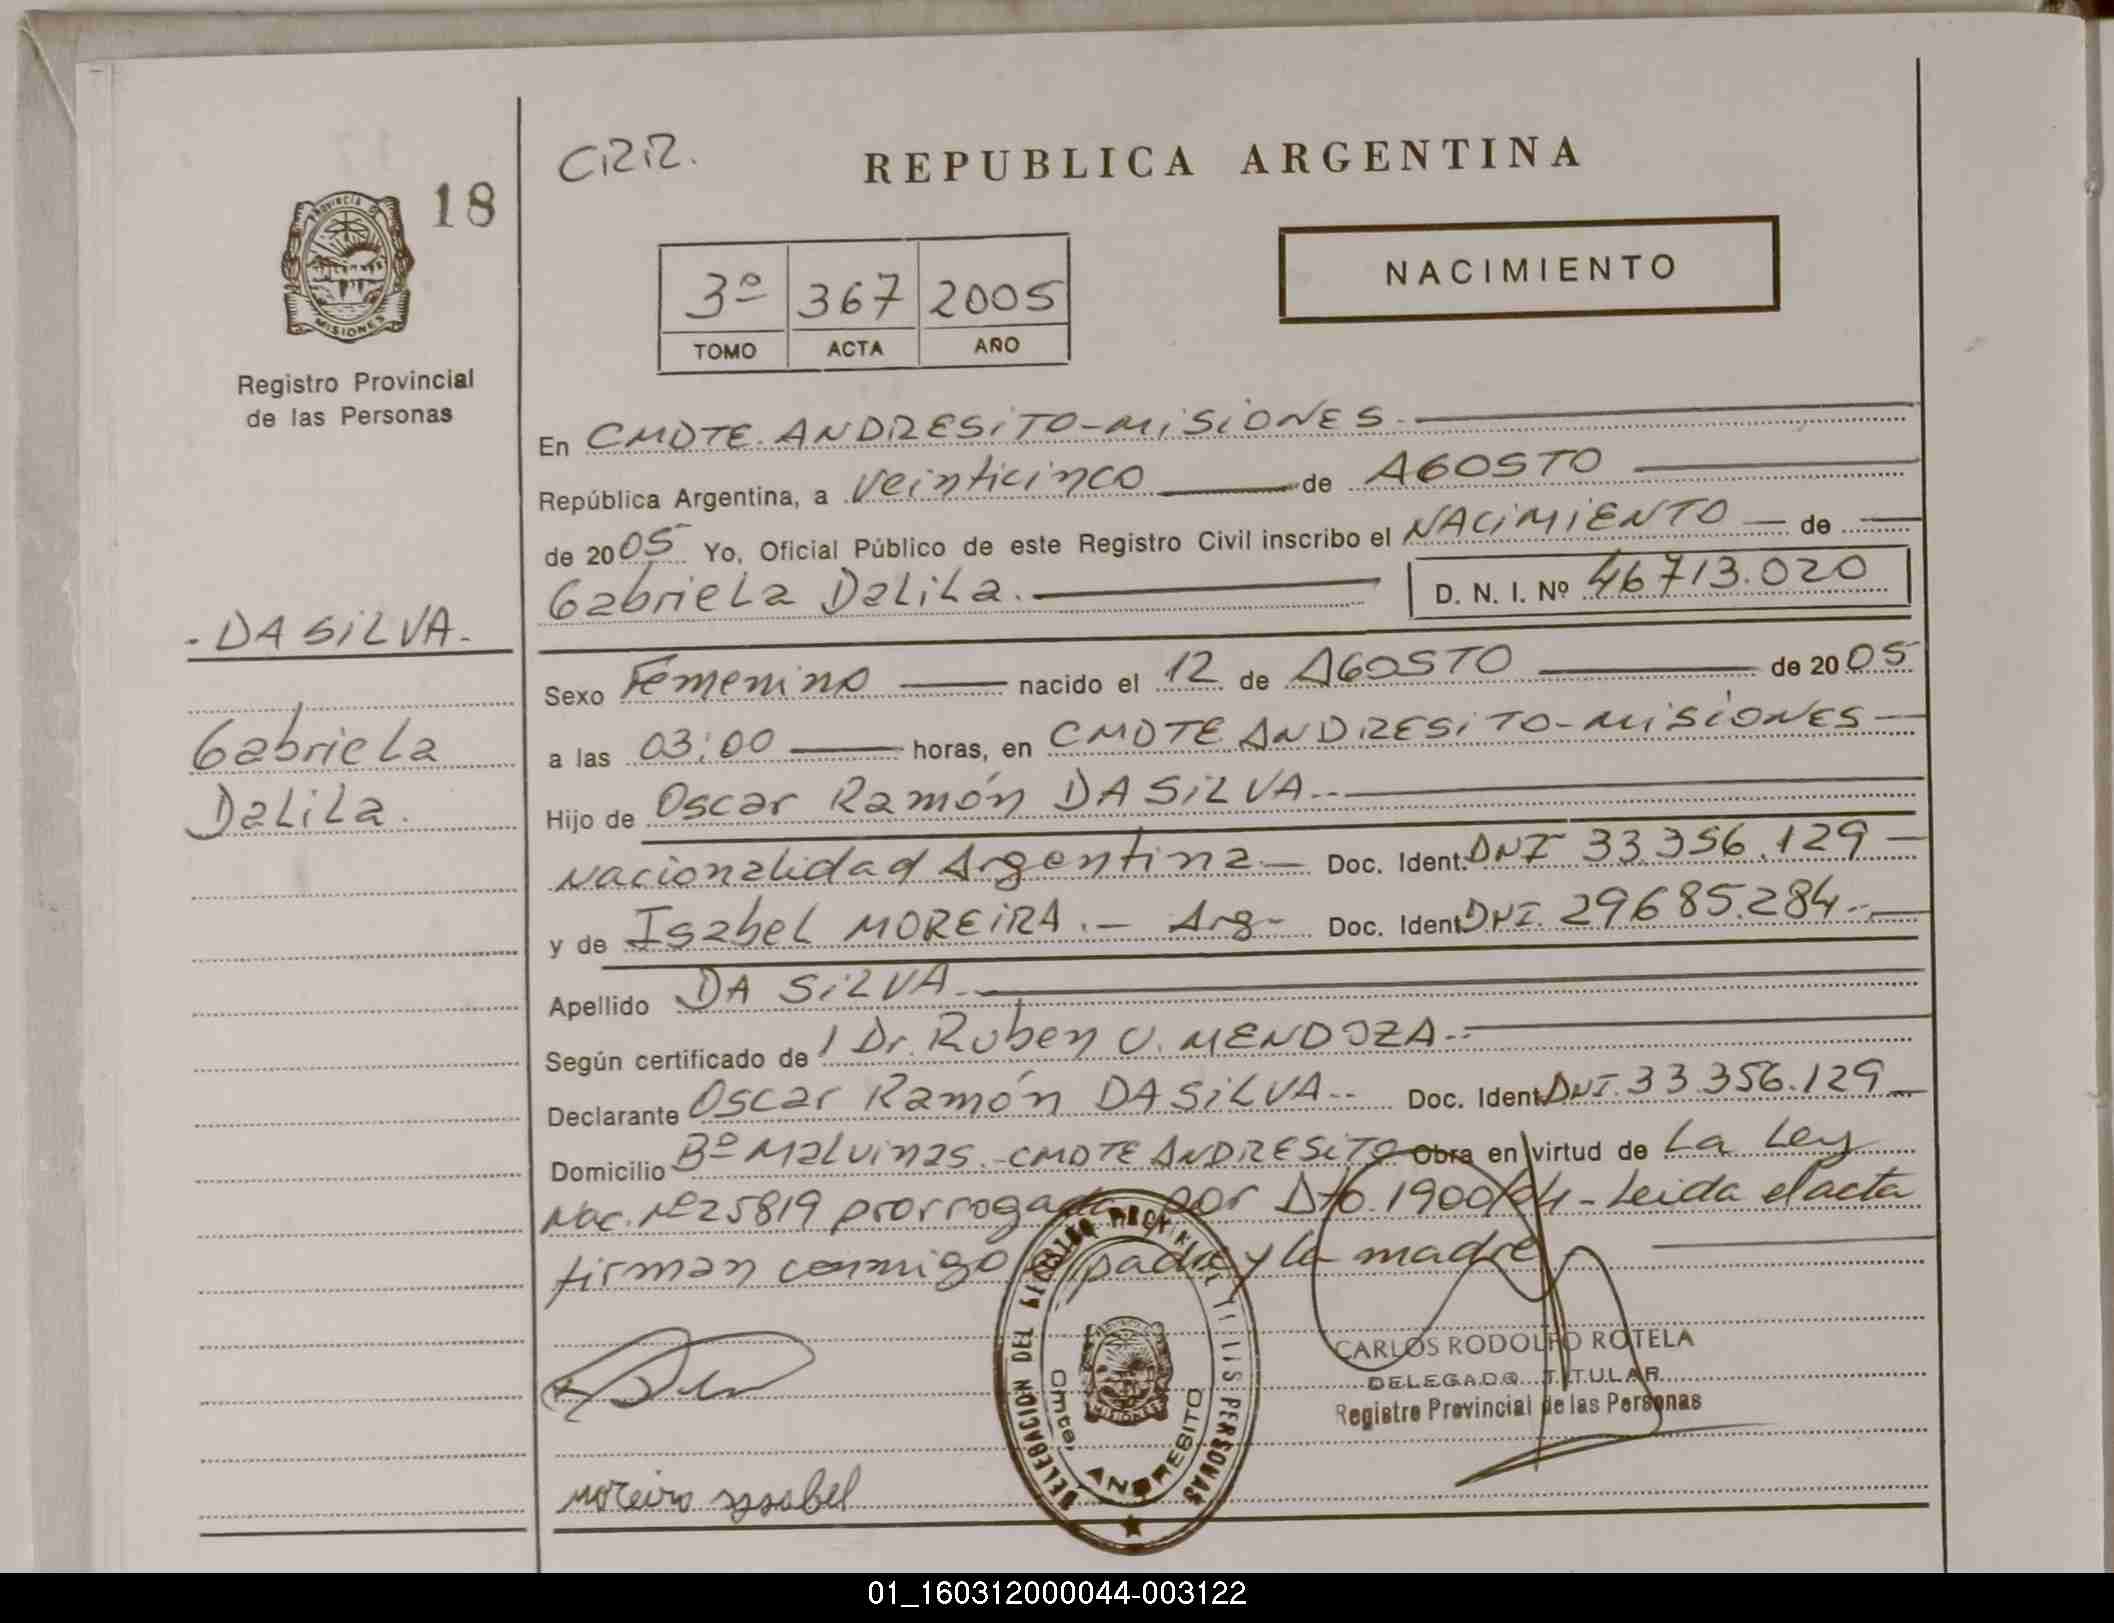 C.R.R.
REPUBLICA ARGENTINA
18
PROVINCIA DE
MISIONES
3º 367 2005
TOMO ACTA AÑO
NACIMIENTO
Registro Provincial
de las Personas
En CMDTE. ANDRESITO-MISIONES.
República Argentina, a veinticinco de AGOSTO
de 2005 Yo, Oficial Público de este Registro Civil inscribo el NACIMIENTO de
Gabriela Dalila. D. N. I. Nº 46713.020
- DA SILVA -
Gabriela
Dalila.
Sexo Femenino nacido el 12 de AGOSTO de 2005
a las 03:00 horas, en CMDTE ANDRESITO-MISIONES
Hijo de Oscar Ramón DA SILVA.-
Nacionalidad Argentina.- Doc. Ident. DNI 33.356.129
y de Isabel MOREIRA.- Arg- Doc. Ident DNI. 29685.284.-
Apellido DA SILVA.
Según certificado de / Dr. Ruben U. MENDOZA.-
Declarante Oscar Ramón DA SILVA.- Doc. Ident DNI. 33.356.129
Domicilio Bº Malvinas.-CMDTE ANDRESITO Obra en virtud de La Ley
Nac. Nº25819 prorrogada por Dto. 1900/04-Leida el acta
firman conmigo padre y la madre
DELEGACION DEL REGISTRO PROVINCIAL DE LAS PERSONAS
Cmte. ANDRESITO
MISIONES
CARLOS RODOLFO ROTELA
DELEGADO TITULAR
Registro Provincial de las Personas
moreira yssabel
01_160312000044-003122